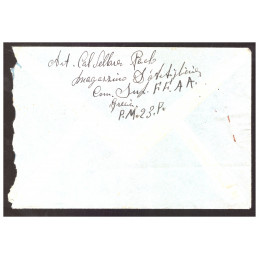 Art. Cal Sellares Paolo
magazzino d'artiglieria
Com. Sup. FF. AA.
Grecia
P.M. 23. P.